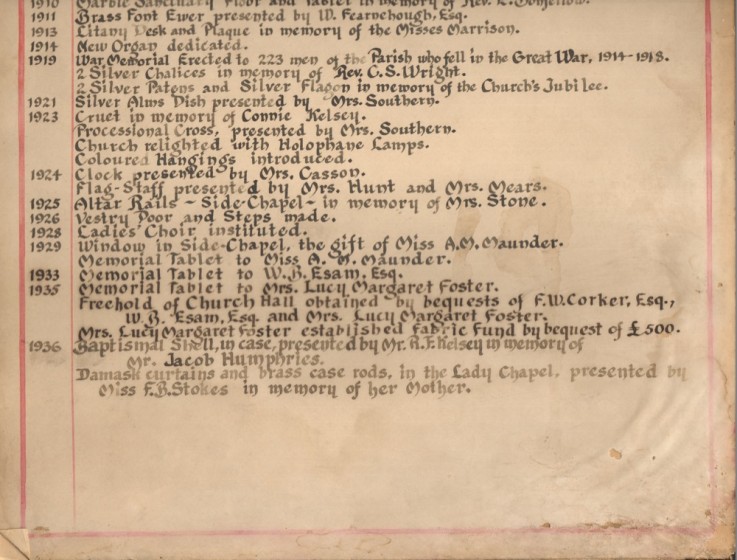 1910 Marble Sanctuary Floor and Tablet in memory of Rev.
1911 Brass Font Ewer presented by W. Fearnehough, Esq.
1913 Litany Desk and Plaque in memory of the Misses Marrison.
1914 New Organ dedicated.
1919 War Memorial Erected to 223 men of the Parish who fell in the Great War, 1914-1918.
2 Silver Chalices in memory of Rev. C. S. Wright.
2 Silver Patens and Silver Flagon in memory of the Church's Jubilee.
1921 Silver Alms Dish presented by Mrs. Southern.
1923 Cruet in memory of Connie Kelsey.
Processional Cross, presented by Mrs. Southern.
Church relighted with Holophane Lamps.
Coloured Hangings introduced.
1924 Clock presented by Mrs. Casson.
Flag-Staff presented by Mrs. Hunt and Mrs. Mears.
1925 Altar Rails - Side-Chapel - in memory of Mrs. Stone.
1926 Vestry Door and Steps made.
1928 Ladies' Choir instituted.
1929 Window in Side-Chapel, the gift of Miss A.M. Maunder.
Memorial Tablet to Miss A. M. Maunder.
1933 Memorial Tablet to W. B. Esam, Esq.
1935 Memorial Tablet to Mrs. Lucy Margaret Foster.
Freehold of Church Hall obtained by bequests of F.W. Corker, Esq.,
W. B. Esam, Esq. and Mrs. Lucy Margaret Foster.
Mrs. Lucy Margaret Foster established Fabric Fund by bequest of £500.
1936 Baptismal Shell, in case, presented by Mr. R. F. Kelsey in memory of
Mr. Jacob Humphries.
Damask curtains and brass case rods, in the Lady Chapel, presented by
Miss F. B. Stokes in memory of her Mother.